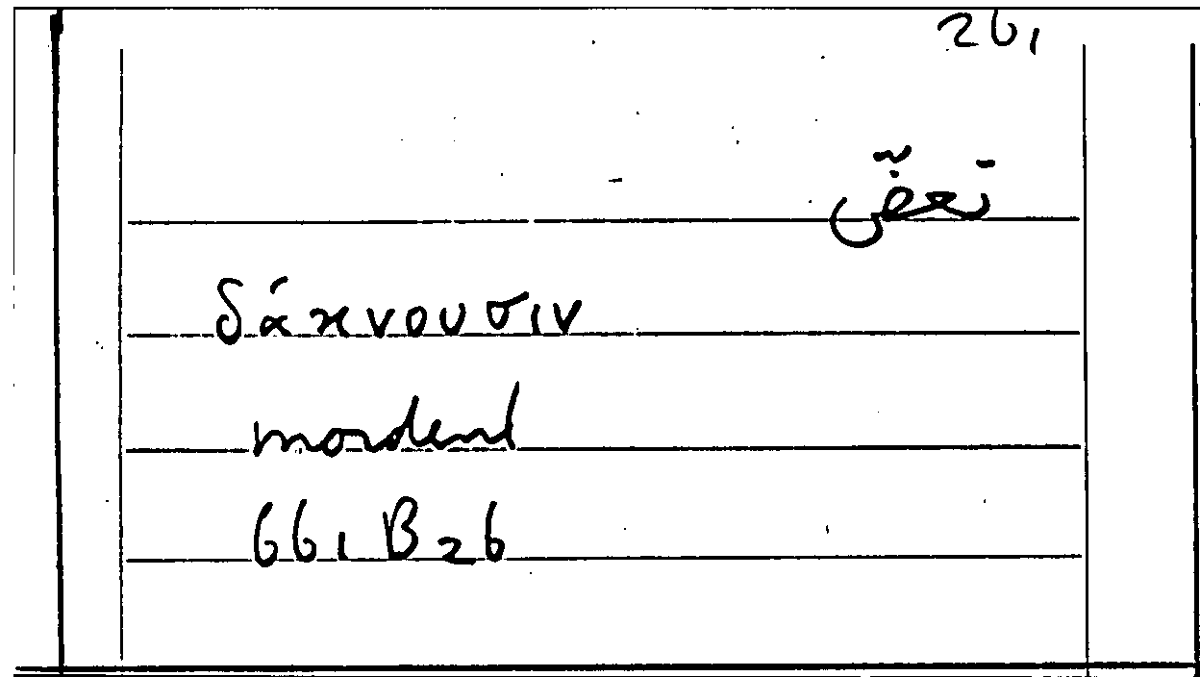 261
تعضّ
δάκνουσιν
mordent
661 B 26